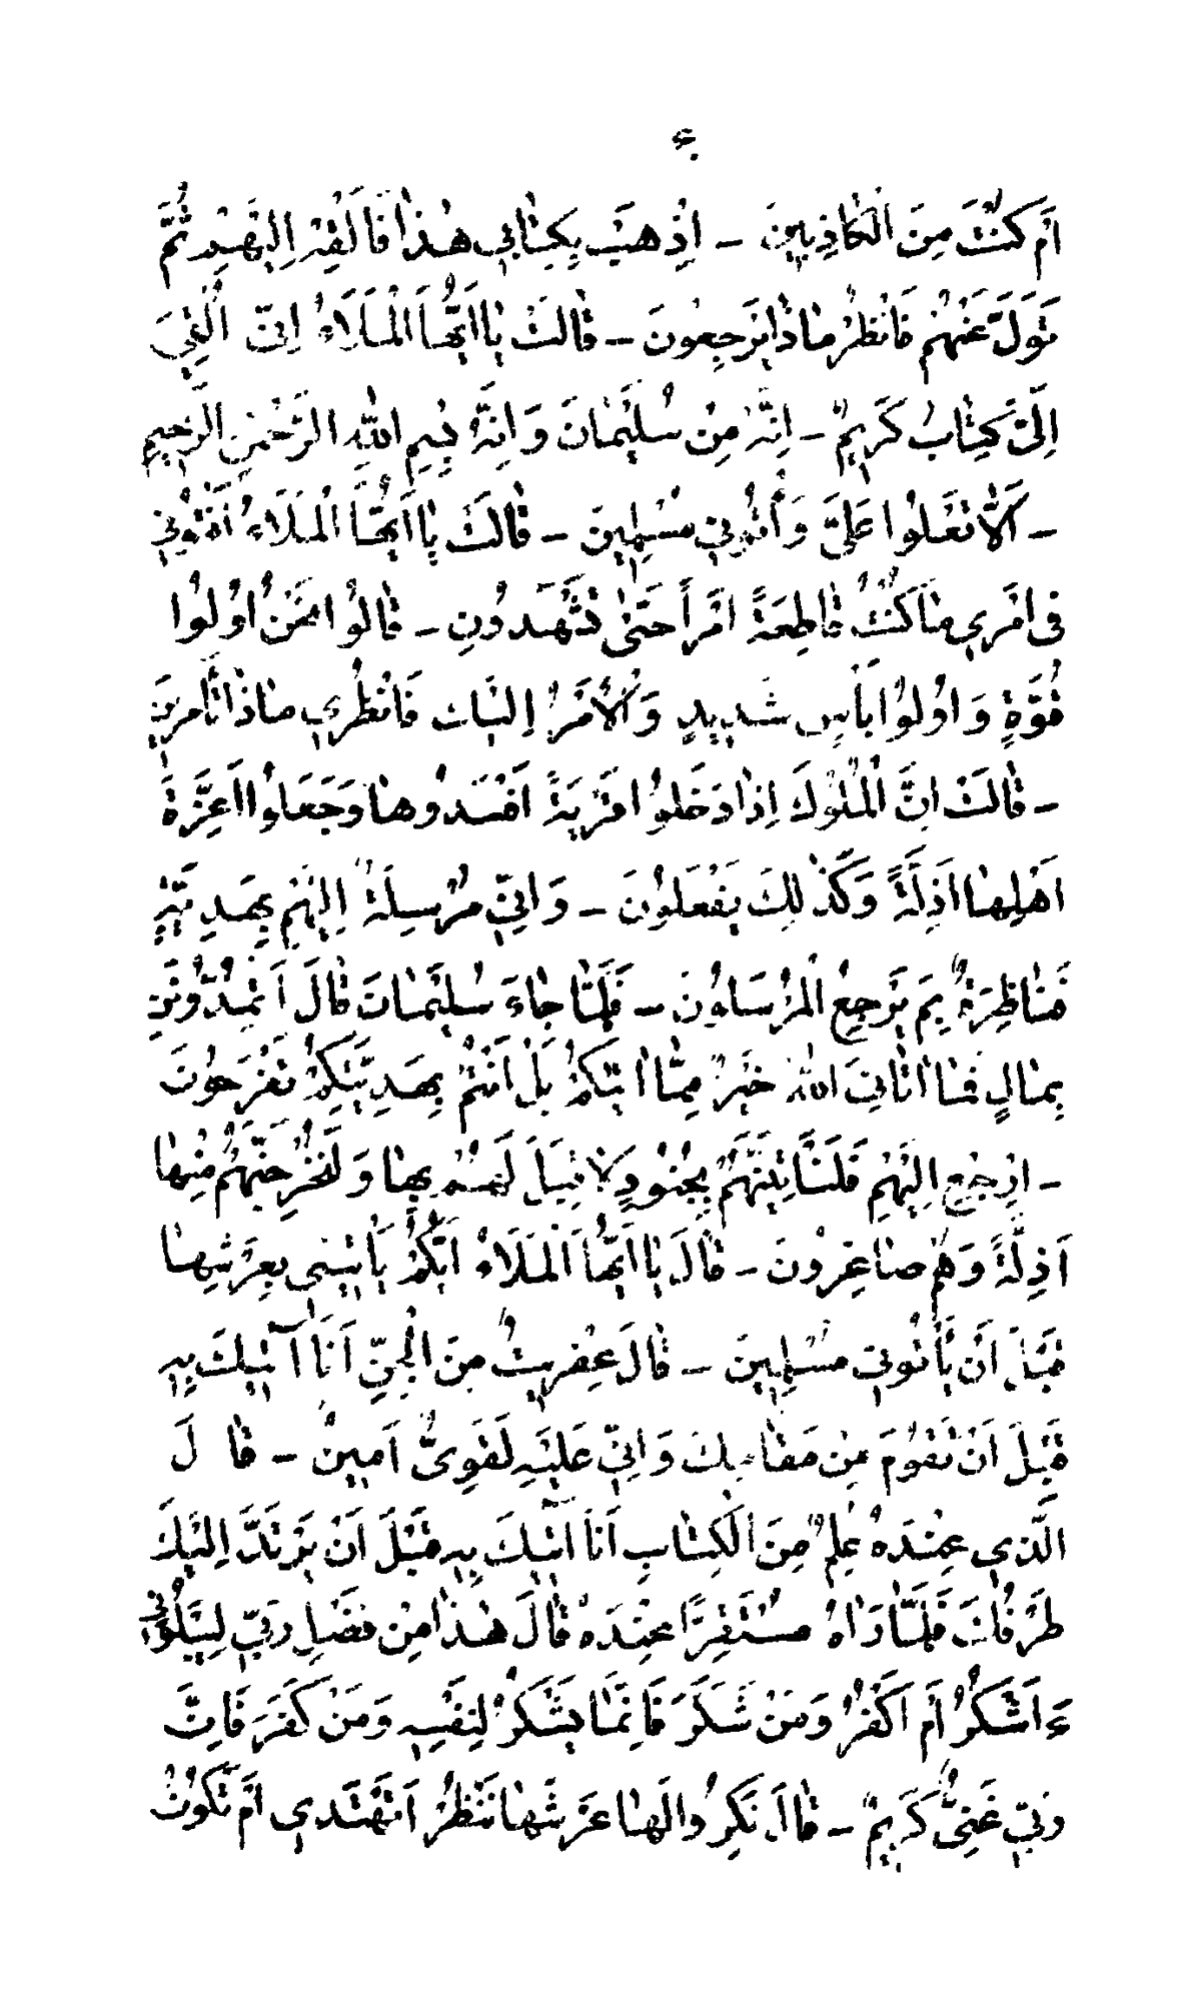 ء
اَم كُنْتَ مِنَ الْكَاذِبِينَ - اِذْهَبْ بِكِتَابِي هٰذَا فَاَلْقِهْ اِلَيْهِمْ ثُمَّ
تَوَلَّ عَنْهُمْ فَانْظُرْ مَاذَا يَرْجِعُونَ - قَالَتْ يَا اَيُّهَا الْمَلَاءُ اِنّي اُلْقِيَ
اِلَيَّ كِتَابٌ كَرِيمٌ - اِنَّهُ مِنْ سُلَيْمَانَ وَ اِنَّهُ بِسِمِ اللّٰهِ الرَّحْمٰنِ الرَّحِيمِ
- اَلَّا تَعْلُوا عَلَيَّ وَأْتُونِي مُسْلِمِينَ - قَالَتْ يَا اَيُّهَا الْمَلَاءُ اَفْتُونِي
فِى اَمْرِي مَا كُنْتُ قَاطِعَةً اَمْراً حَتّىٰ تَشْهَدُونِ - قَالُوا نَحْنُ اُولُوا
قُوَّةٍ وَ اوُلُوا بَأْسٍ شَدِيدٍ وَالْأَمْرُ اِلَيْكِ فَانْظُرِي مَاذَا تَأْمُرِينَ
- قَالَتْ اِنَّ الْمُلُوكَ اِذَا دَخَلُوا قَرْيَةً اَفْسَدُوهَا وَجَعَلُوا اَعِزَّةَ
اَهْلِهَا اَذِلَّةً وَكَذٰلِكَ يَفْعَلُونَ - وَ اِنّي مُرْسِلَةٌ اِلَيْهِمْ بِهَدِيَّةٍ
فَنَاظِرَةٌ بِمَ يَرْجِعُ الْمُرْسَلُونَ - فَلَمَّا جَاءَ سُلَيْمَانَ قَالَ اَتُمِدُّونَنِ
بِمَالٍ فَمَا اٰتَانِيَ اللّٰهُ خَيْرٌ مِمَّا اٰتَيكُمْ بَلْ اَنْتُمْ بِهَدِيَّتِكُمْ تَفْرَحُونَ
- اِرْجِعْ اِلَيْهِمْ فَلَنَأْتِيَنَّهُمْ بِجُنُودٍ لَا قِبَلَ لَهُمْ بِهَا وَ لَنُخْرِجَنَّهُمْ مِنْهَا
اَذِلَّةً وَ هُمْ صَاغِرُونَ - قَالَ يَا اَيُّهَا الْمَلَاءُ اَيُّكُمْ يَأْتِينِي بِعَرْشِهَا
قَبْلَ اَنْ يَأْتُونِي مُسْلِمِينَ - قَالَ عِفْرِيتٌ مِنَ الْجِنِّ اَنَا آتِيكَ بِهِ
قَبْلَ اَنْ تَقُومَ مِنْ مَقَامِكَ وَ اِنّي عَلَيْهِ لَقَوِيٌّ اَمِينٌ - قَا لَ
الَّذِي عِنْدَهُ عِلْمٌ مِنَ الْكِتَابِ اَنَا آتِيكَ بِهِ قَبْلَ اَنْ يَرْتَدَّ اِلَيْكَ
طَرْفُكَ فَلَمَّا رَاٰهُ مُسْتَقِرًّا عِنْدَهُ قَالَ هٰذَا مِنْ فَضْلِ رَبّي لِيَبْلُوَنِي
ءَ اَشْكُرُ اَمْ اَكْفُرُ وَ مَنْ شَكَرَ فَاِنَّمَا يَشْكُرُ لِنَفْسِهِ وَ مَنْ كَفَرَ فَاِنَّ
رَبّي غَنِيٌّ كَرِيمٌ - قَالَ نَكِّرُوا لَهَا عَرْشَهَا نَنْظُرْ اَتَهْتَدي اَمْ تَكُونُ